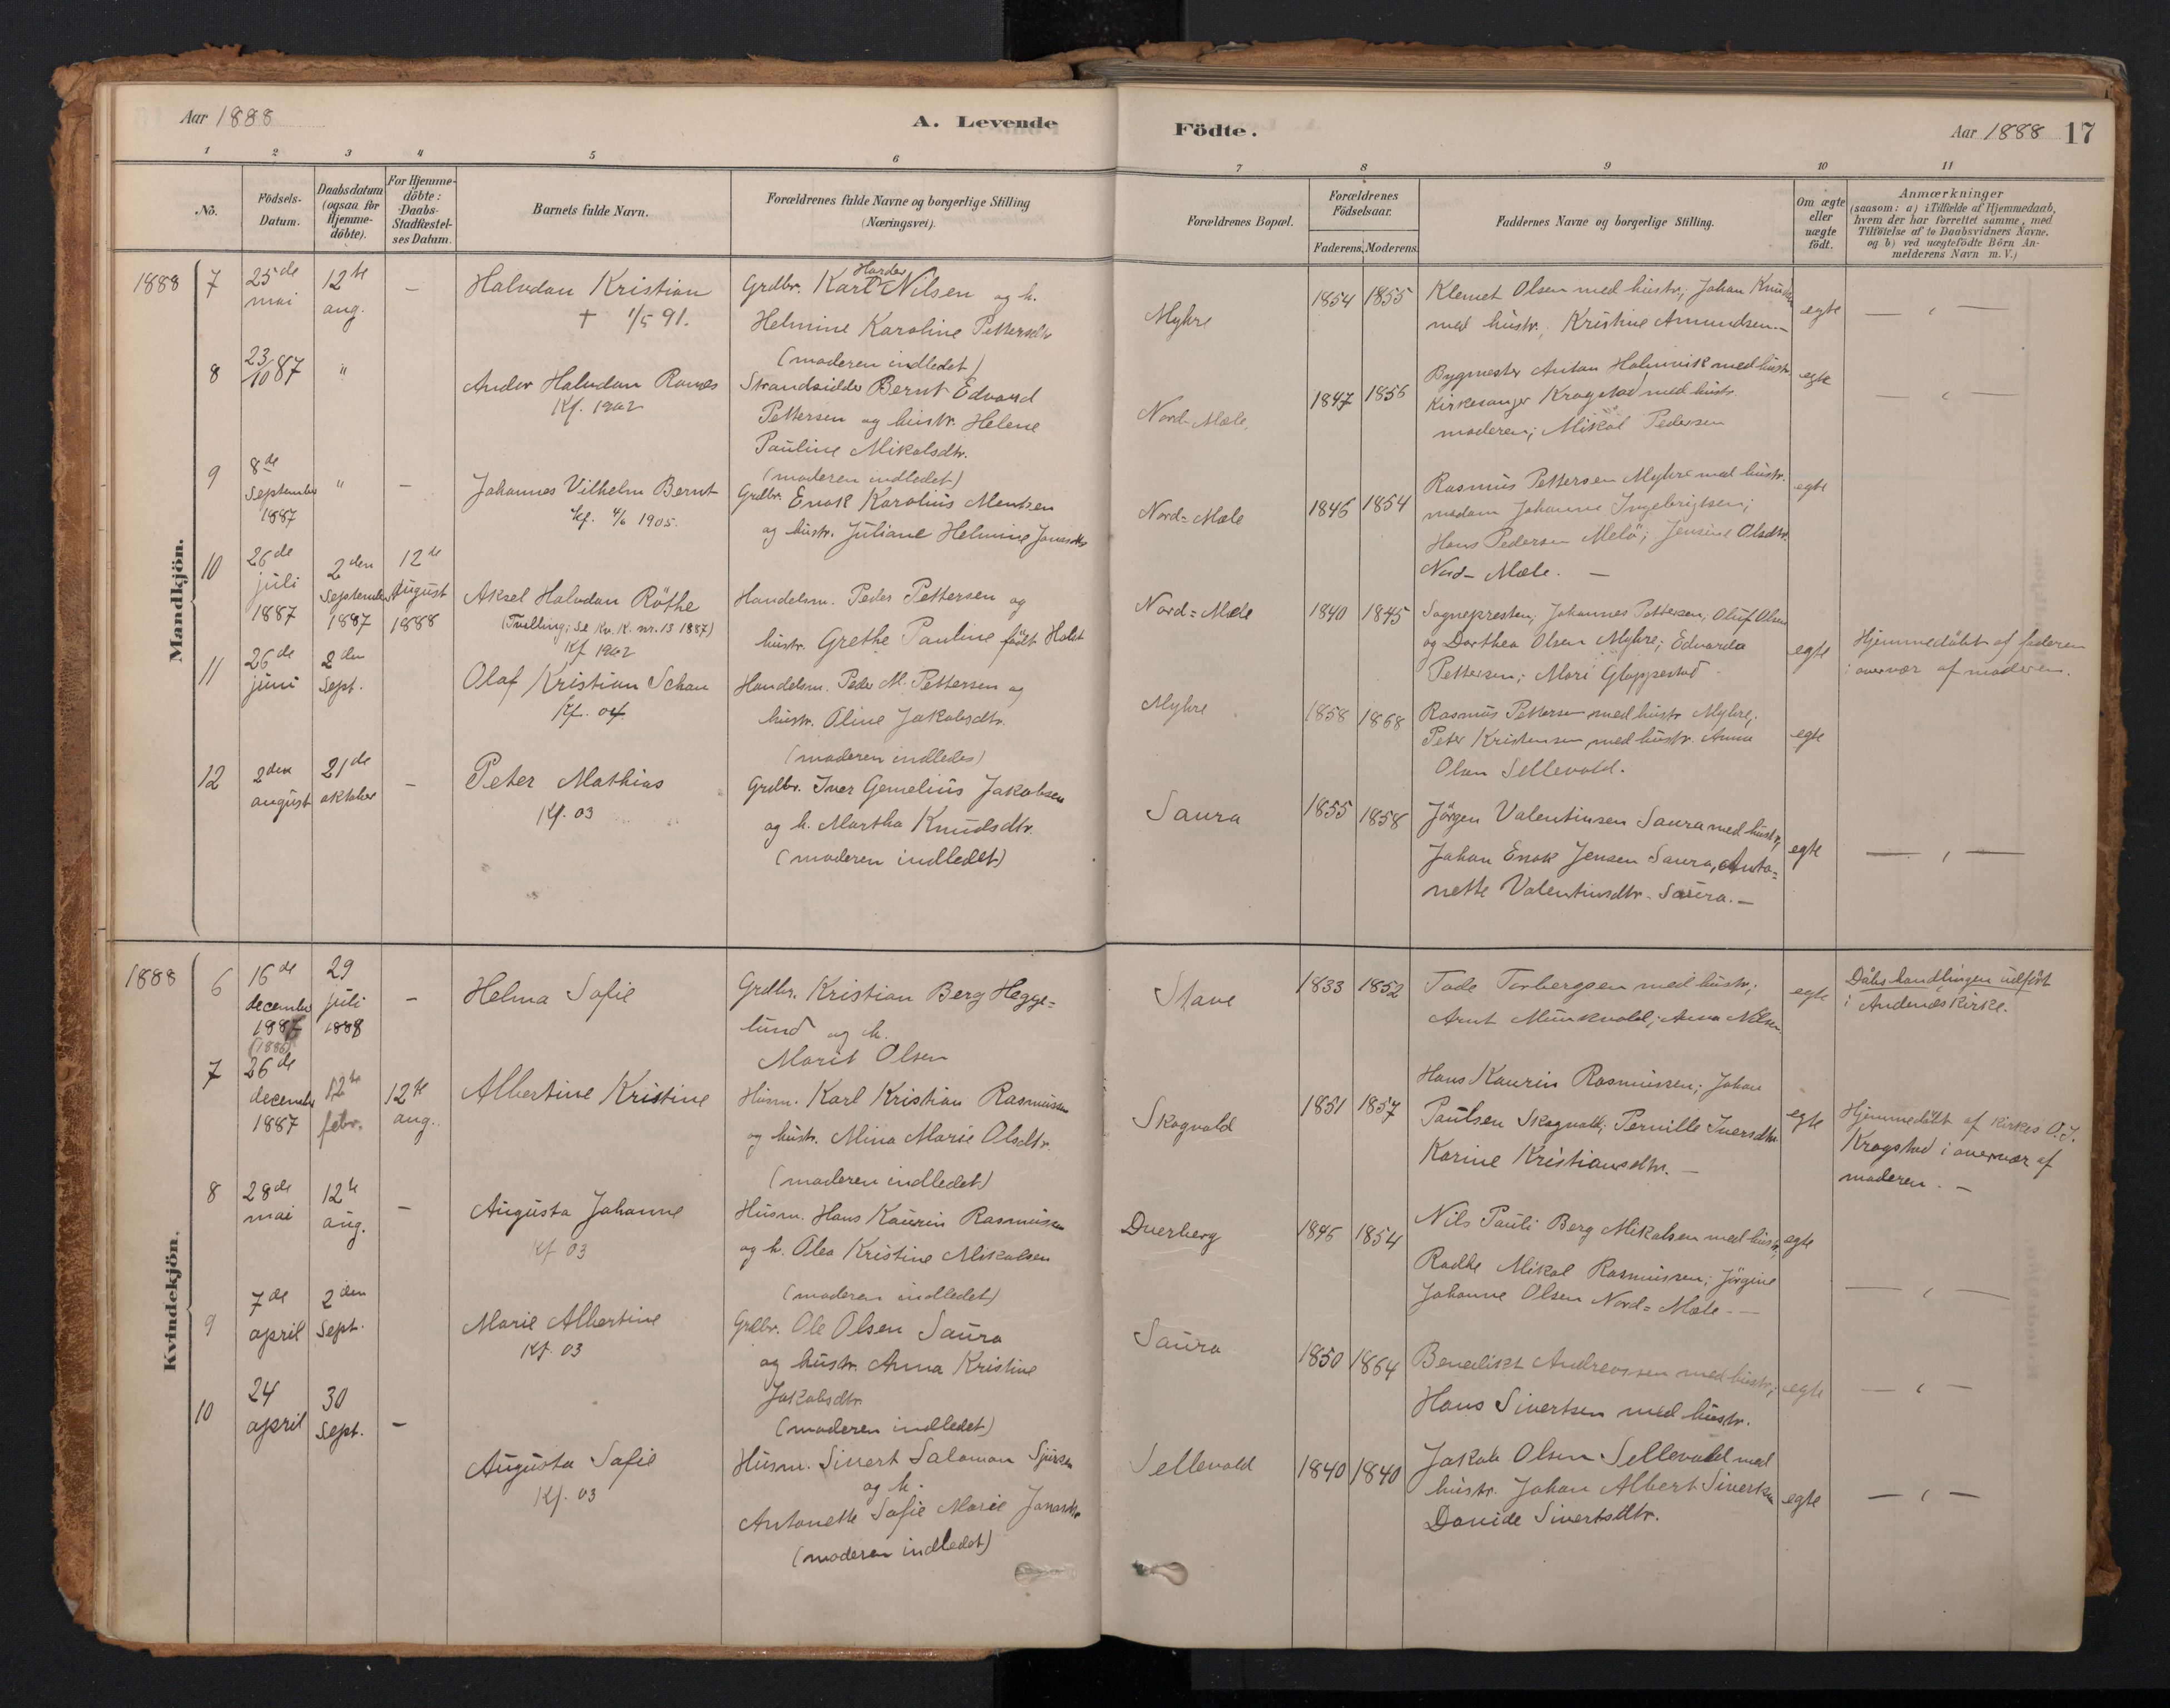 Aar 1888
A. Levende
Födte.
Aar 1888 17
1 2 3 4 5 6 7 8 9 10 11
No.
Födsels-
Datum.
Daabsdatum
(ogsaa for
Hjemme-
döbte).
For Hjemme-
döbte:
Daabs-
Stadfæstel-
ses Datum.
Barnets fulde Navn.
Forældrenes fulde Navne og borgerlige Stilling
(Næringsvei).
Forældrenes Bopæl.
Forældrenes
Födselsaar.
Faderens. Moderens.
Faddernes Navne og borgerlige Stilling.
Om ægte
eller
uægte
födt.
Anmærkninger
(saasom: a) i Tilfælde af Hjemmedaab,
hvem der har forrettet samme, med
Tilföielse af to Daabsvidners Navne,
og b) ved uægtefödte Börn An-
melderens Navn m. V.)
Mandkjön.
1888 7
25de
mai
12te
aug.
—
Halvdan Kristian
† 1/5 91.
Harder
Grdbr. Karl Nilsen og h.
Helmine Karoline Pettersdtr
(moderen indledet)
Myhre
1854 1855
Klemet Olsen med hustr.; Johan Knudsen
med hustr. Kristine Amundsen —
egte
— „ —
8
23/10 87
"
Andor Halvdan Ranes
Kf. 1902
Strandsidder Bernt Edvard
Pettersen og hustr. Helene
Pauline Mikalsdtr.
(moderen indledet)
Nord-Mæle,
1847 1856
Bygmester Anton Holmvik med hustr.
Kirkesanger Kragstad med hustr.
moderen; Mikal Pedersen
egte
— „ —
9
8de
September
1887
"
—
Johannes Vilhelm Bernt
Kf. 4/6 1905.
Grdbr. Enok Karolius Mentzen
og hustr. Juliane Helmine Jonasdtr
Nord=Mæle
1846 1854
Rasmus Pettersen Myhre med hustr.
madam Johanne Ingebrigtsen;
Hans Pedersen Melö; Jensine Olsdtr.
Nord-Mæle. —
egte
10
26de
juli
1887
2den
September
1887
12te
August
1888
Aksel Halvdan Röthe
(Tvelling; se Kv. K. nr. 13 1887)
Kf 1902
Handelsm. Peder Pettersen og
hustr. Grethe Pauline födt Holst
Nord=Mæle
1840 1845
Sognepresten, Johannes Pettersen, Oluf Olsen
og Dorthea Olsen Myhre; Edvarda
Pettersen; Mari Gloppestad
egte
Hjemmedöbt af faderen
i overvær af moderen.
11
26de
juni
2den
Sept.
Olaf Kristian Schau
Kf. 04
Handelsm. Peder M. Pettersen og
hustr. Oline Jakobsdtr.
(moderen indledes)
Myhre
1858 1868
Rasmus Pettersen med hustr Myhre;
Peter Kristensen med hustr. Anna
Olsen Sellevold.
egte
12
2den
august
21de
oktober
—
Peter Mathias
Kf. 03
Grdbr. Iver Gemelius Jakobsen
og h. Martha Knudsdtr.
(moderen indledet)
Saura
1855 1858
Jörgen Valentinsen Saura med hustr,
Johan Enok Jensen Saura, Anto=
nette Valentinsdtr. Saura. —
egte
— „ —
Kvindekjön.
1888 6
16de
december
1887
(1886)
29
juli
1888
—
Helma Sofie
Grdbr. Kristian Berg Hegge=
lund og h.
Marit Olsen
Stave
1833 1852
Tode Torbergsen med hustr;
Arnt Munkvold; Anna Nilsen
egte
Dåbshandlingen udfört
i Andenæs Kirke.
7
26de
december
1887
12te
febr.
12te
aug.
Albertine Kristine
Husm. Karl Kristian Rasmussen
og hustr. Mina Marie Olsdtr.
(moderen indledet)
Skogvold
1851 1857
Hans Kaurin Rasmussen; Johan
Paulsen Skogvold; Pernille Iversdtr.
Karine Kristiansdtr. —
egte
Hjemmedöbt af Kirkes O. J.
Kragstad i overvær af
moderen. —
8
28de
mai
12te
aug.
—
Augusta Johanne
Kf 03
Husm. Hans Kaurin Rasmussen
og h. Olea Kristine Mikalsen
(moderen indledet)
Dverberg
1845 1854
Nils Pauli Berg Mikalsen med hustr,
Radke Mikal Rasmussen; Jörgine
Johanne Olsen Nord=Mæle —
egte
— „ —
9
7de
april
2den
Sept.
Marie Albertine
Kf. 03
Grdbr. Ole Olsen Saura
og hustr. Anna Kristine
Jakobsdtr
(moderen indledet)
Saura
1850 1864
Benedikt Andreassen med hustr;
Hans Sivertsen med hustr.
egte
— „ —
10
24
april
30
Sept.
—
Augusta Sofie
Kf. 03
Husm. Sivert Salomon Sjursen
og h.
Antonette Sofie Marie Jonasdtr
(moderen indledet)
Sellevold
1840 1840
Jakob Olsen Sellevold med
hustr. Johan Albert Sivertsen
Davide Sivertsdtr.
egte
— „ —